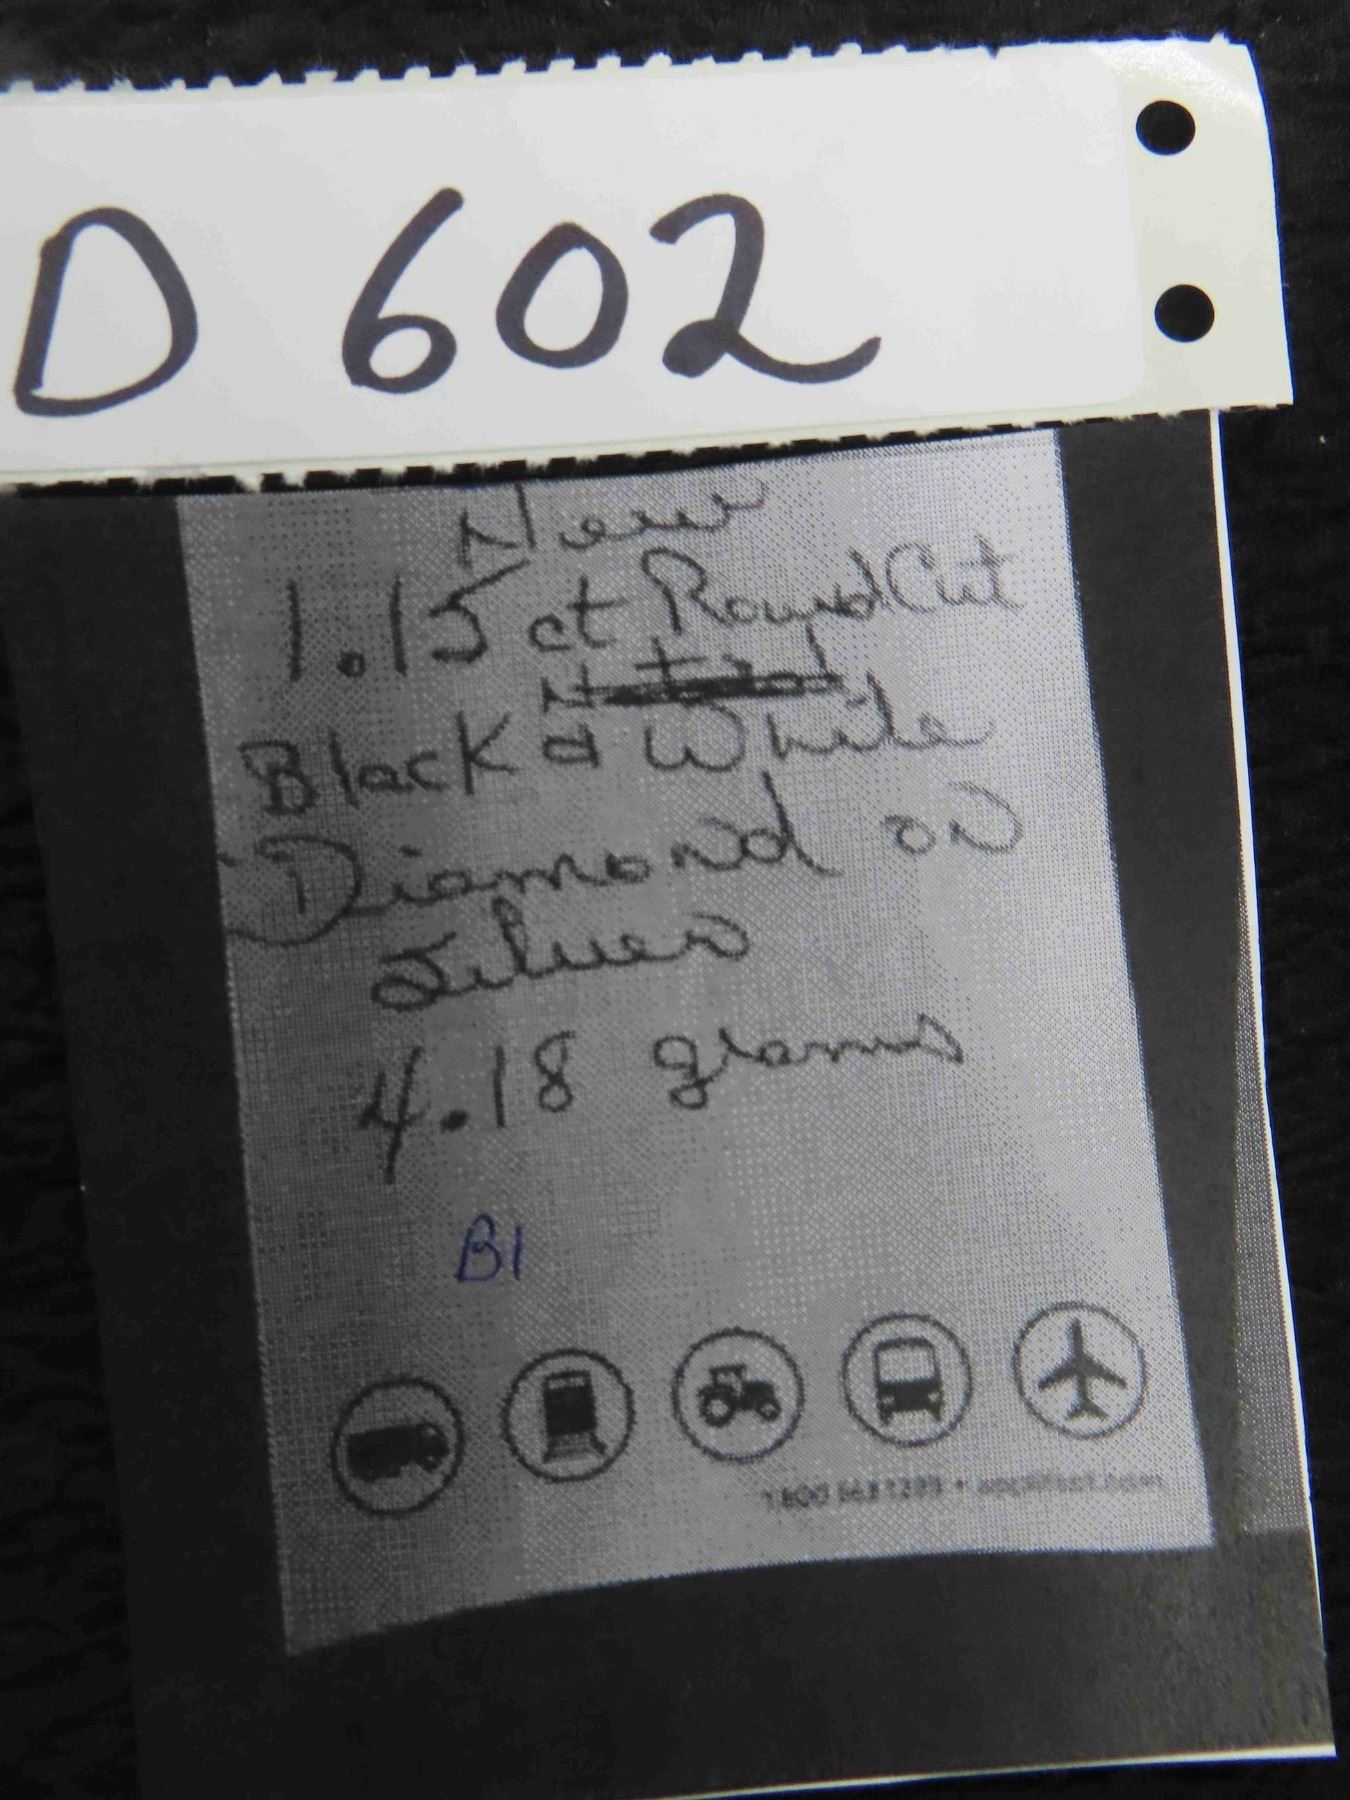 D 602
New
1.15 ct Round Cut
Black & White
Diamond on
Silver
4.18 grams
B1
1800 663 1289 •